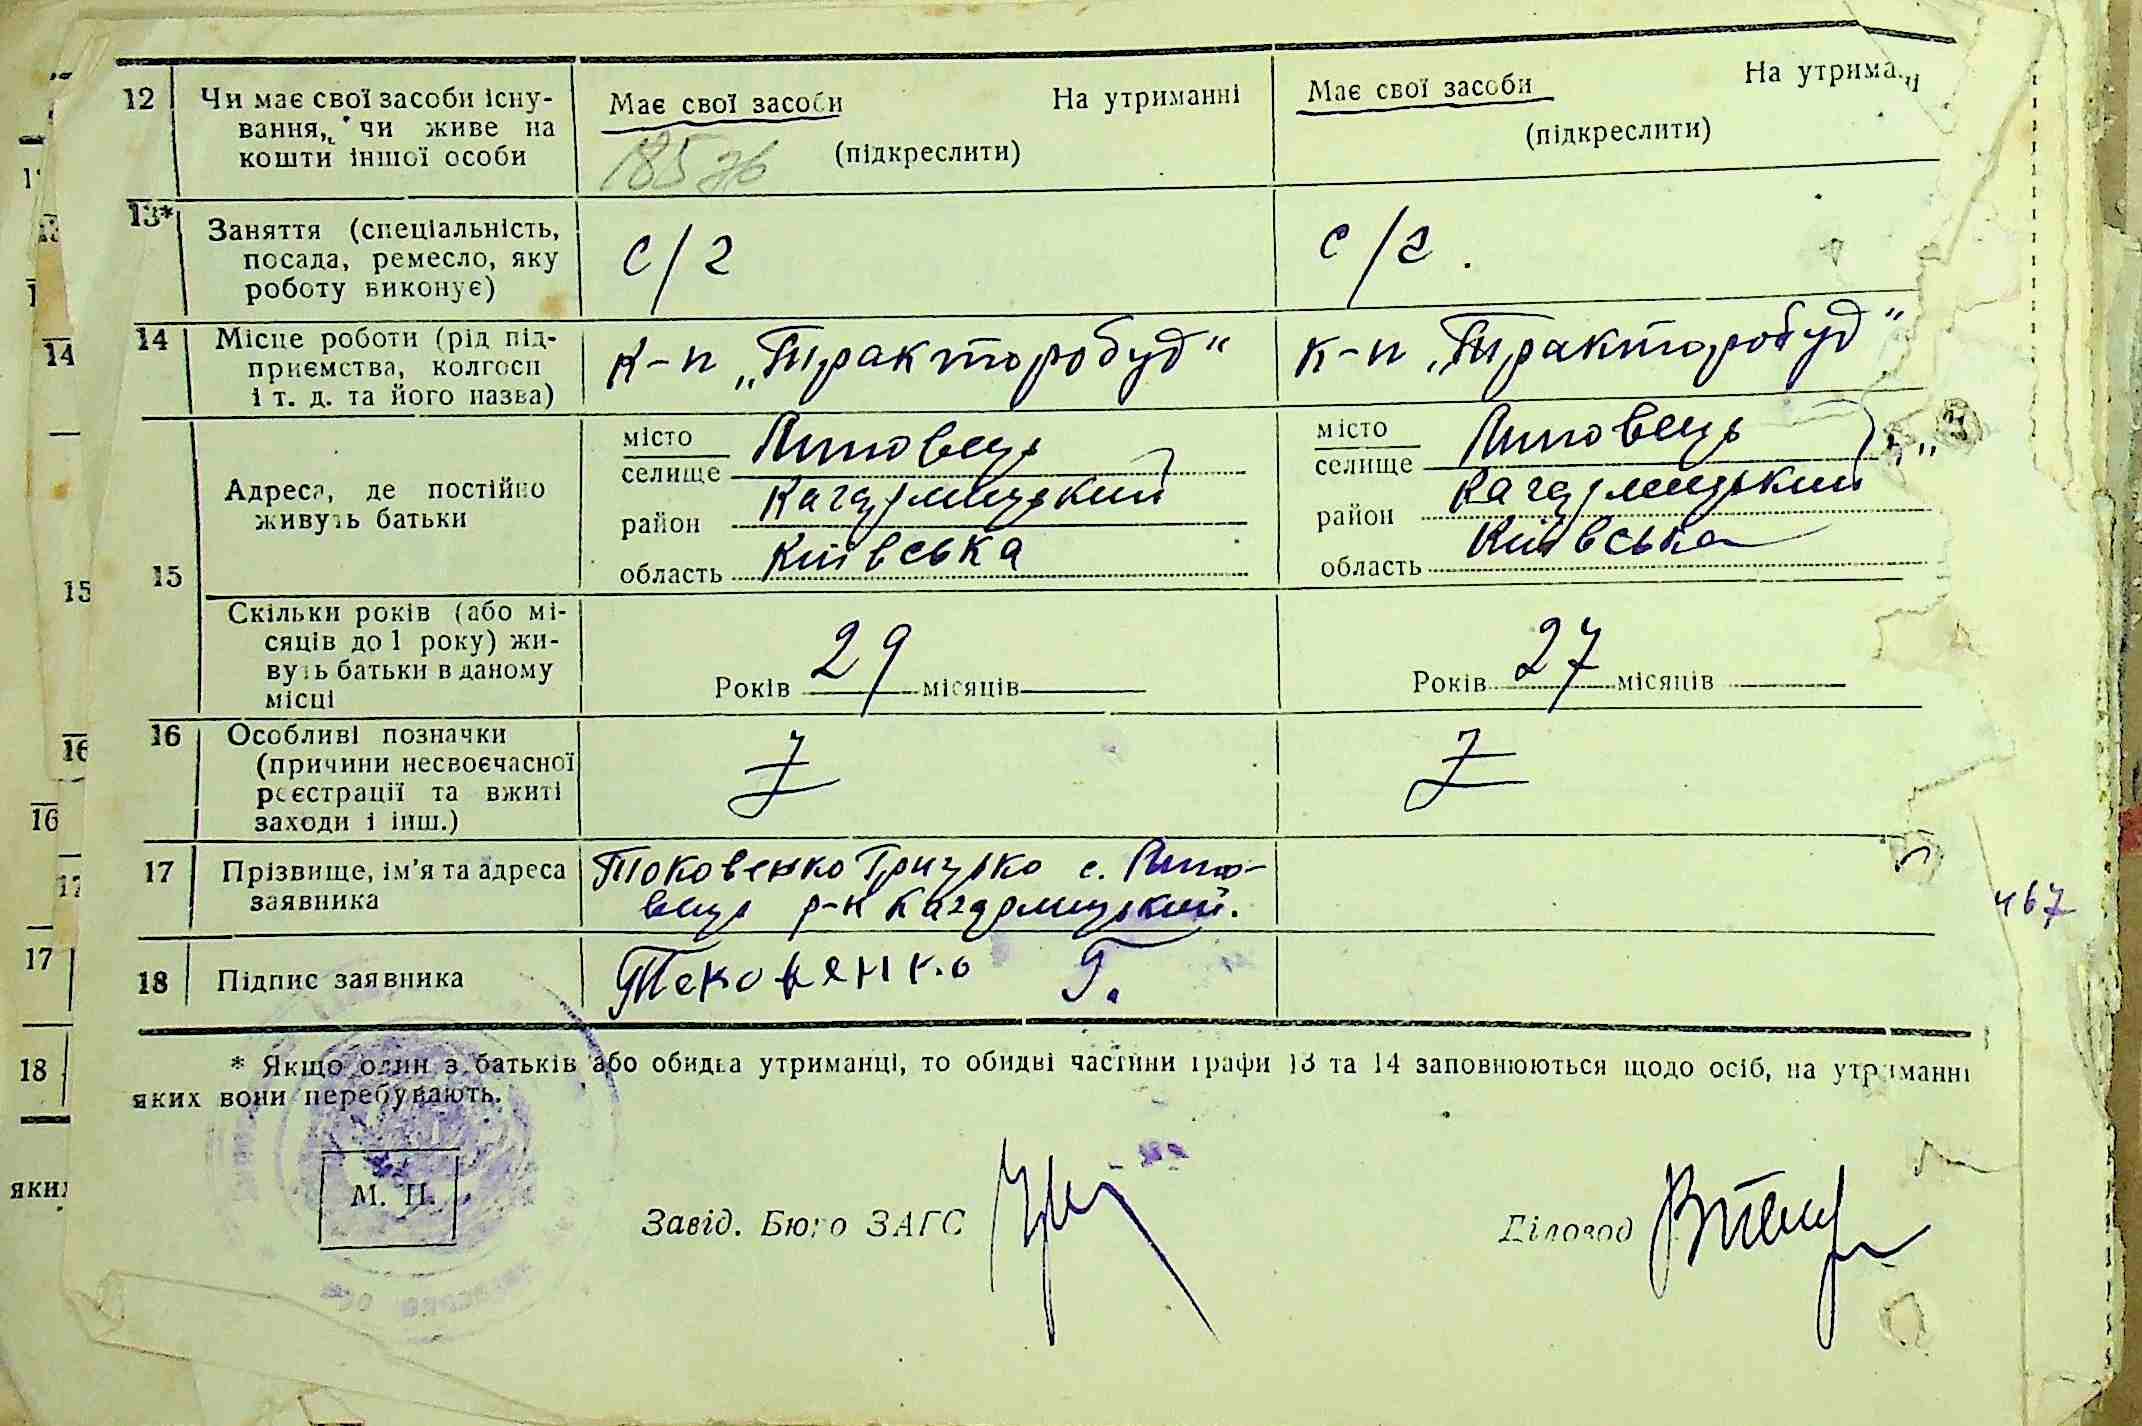 12 Чи має свої засоби існу-
вання, чи живе на
кошти іншої особи
Має свої засоби На утриманні
(підкреслити)
185 ж
Має свої засоби На утрима
(підкреслити)
13* Заняття (спеціальність,
посада, ремесло, яку
роботу виконує)
с/г
с/г.
14 Місце роботи (рід під-
приємства, колгосп
і т. д. та його назва)
к-п „Тракторобуд“
к-п „Тракторобуд“
15 Адреса, де постійно
живуть батьки
місто
селище Липовець
район Кагарлицький
область Київська
місто
селище Липовець
район Кагарлицький
область Київська
Скільки років (або мі-
сяців до 1 року) жи-
вуть батьки в даному
місці
Років 29 місяців
Років 27 місяців
16 Особливі позначки
(причини несвоєчасної
реєстрації та вжиті
заходи і інш.)
17 Прізвище, ім'я та адреса
заявника
Токовенко Грицько с. Липо-
вець р-н Кагарлицький.
467
18 Підпис заявника
Токовенко Г.
* Якщо один з батьків або обидва утриманці, то обидві частини графи 13 та 14 заповнюються щодо осіб, на утриманні
яких вони перебувають.
М. П.
Завід. Бюро ЗАГС
Діловод
14
15
16
16
17
17
18
яки